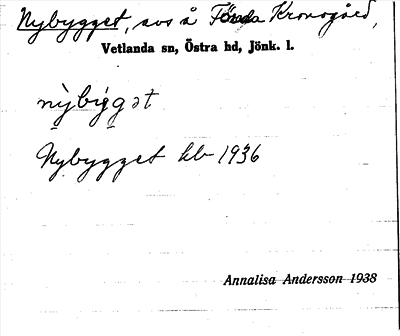 Nybygget, avs å Föreda Kronogård,
Vetlanda sn, Östra hd, Jönk. l.
nỳbig̱gət
Nybygget kb 1936
Annalisa Andersson 1938